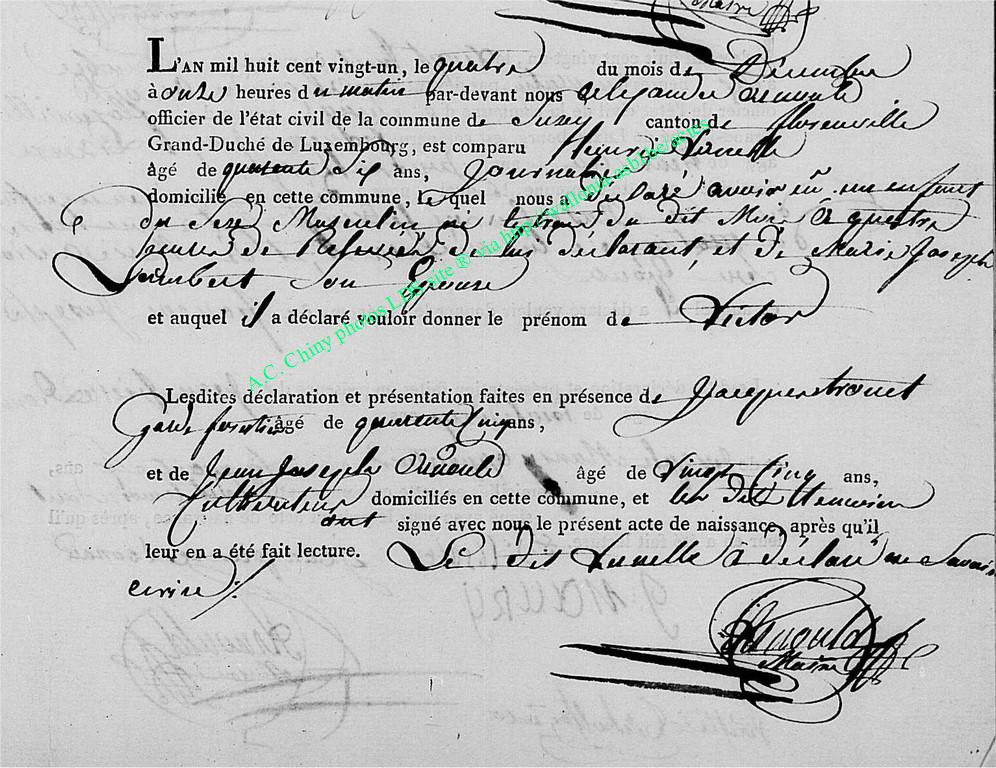 Maire
L'AN mil huit cent vingt-un, le quatre du mois de Décembre
à onze heures du matin par-devant nous alexandre arnould
officier de l'état civil de la commune de Suxy canton de florenville
Grand-Duché de Luxembourg, est comparu Henri
âgé de quarente six ans, Journalier
domicilié en cette commune, le quel nous a déclaré avoir eu un enfant
du Sexe Masculin, né le trois du dit Mois à quatre
heures de de lui declarant, et de Marie Joseph
Lambert Son Epouse
et auquel il a déclaré vouloir donner le prénom de Victor
Lesdites déclaration et présentation faites en présence de Jacques
Garde forestier âgé de quarente Cinq ans,
et de Jean Joseph Arnould âgé de Vingt Cinq ans,
Cultivateur domiciliés en cette commune, et les dits temoins
ont signé avec nous le présent acte de naissance, après qu'il
leur en a été fait lecture. Le dit a declaré ne Savoir
ecrire /.
Arnould
Maire
A.C. Chiny photos LDS site ® via http://wallonica.sbibe/asies